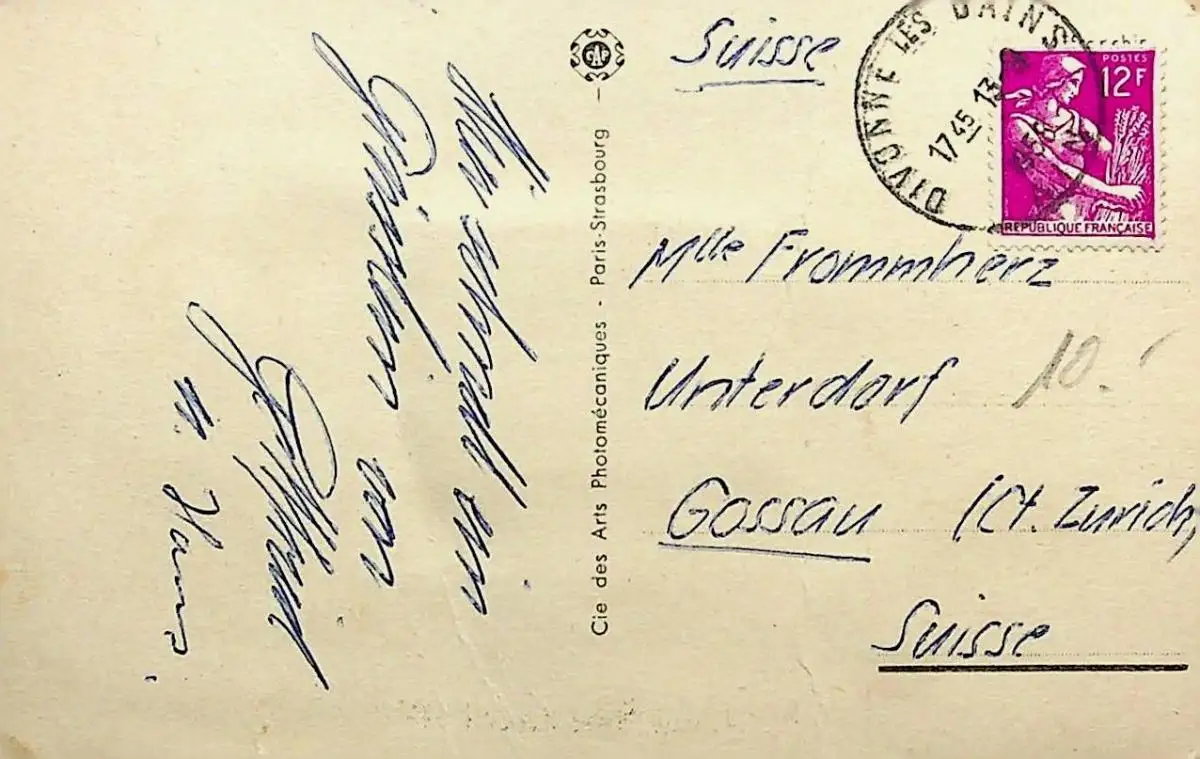 Nur schnell ein
Grüsslein von
u. Hans.
CAP
Cie des Arts Photomécaniques - Paris-Strasbourg
Suisse
DIVONNE LES BAINS
1745 13
POSTES
12F
REPUBLIQUE FRANÇAISE
Mlle Frommherz
Unterdorf
10.-
Gossau (Ct. Zürich)
Suisse